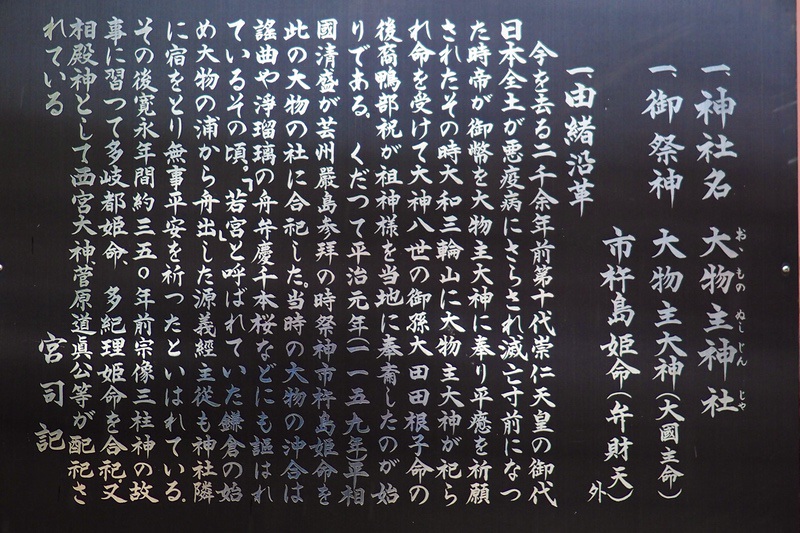 一、神社名 大物主神社
おものぬしじんじゃ
一、御祭神 大物主大神(大國主命)
市杵島姫命(弁財天)外
一、由緒沿革
今を去る二千余年前第十代崇仁天皇の御代
日本全土が悪疫病にさらされ滅亡寸前になつ
た時帝が御幣を大物主大神に奉り平癒を祈願
されたその時大和三輪山に大物主大神が祀ら
れ命を受けて大神八世の御孫大田田根子命の
後裔鴨部祝が祖神様を当地に奉斎したのが始
りである。くだつて平治元年(一一五九年平相
國清盛が芸州嚴島参拜の時祭神市杵島姫命を
此の大物の社に合祀した。当時の大物の沖合は
謡曲や浄瑠璃の舟弁慶千本桜などにも謳はれ
ているその頃。「若宮」と呼ばれていた鎌倉の始
め大物の浦から舟出した源義經主從も神社隣
に宿をとり無事平安を祈つたといはれている。
その後寛永年間約三五〇年前宗像三柱神の故
事に習つて多岐都姫命 多紀理姫命を合祀又
相殿神として西宮大神菅原道眞公等が配祀さ
れている
宮司記